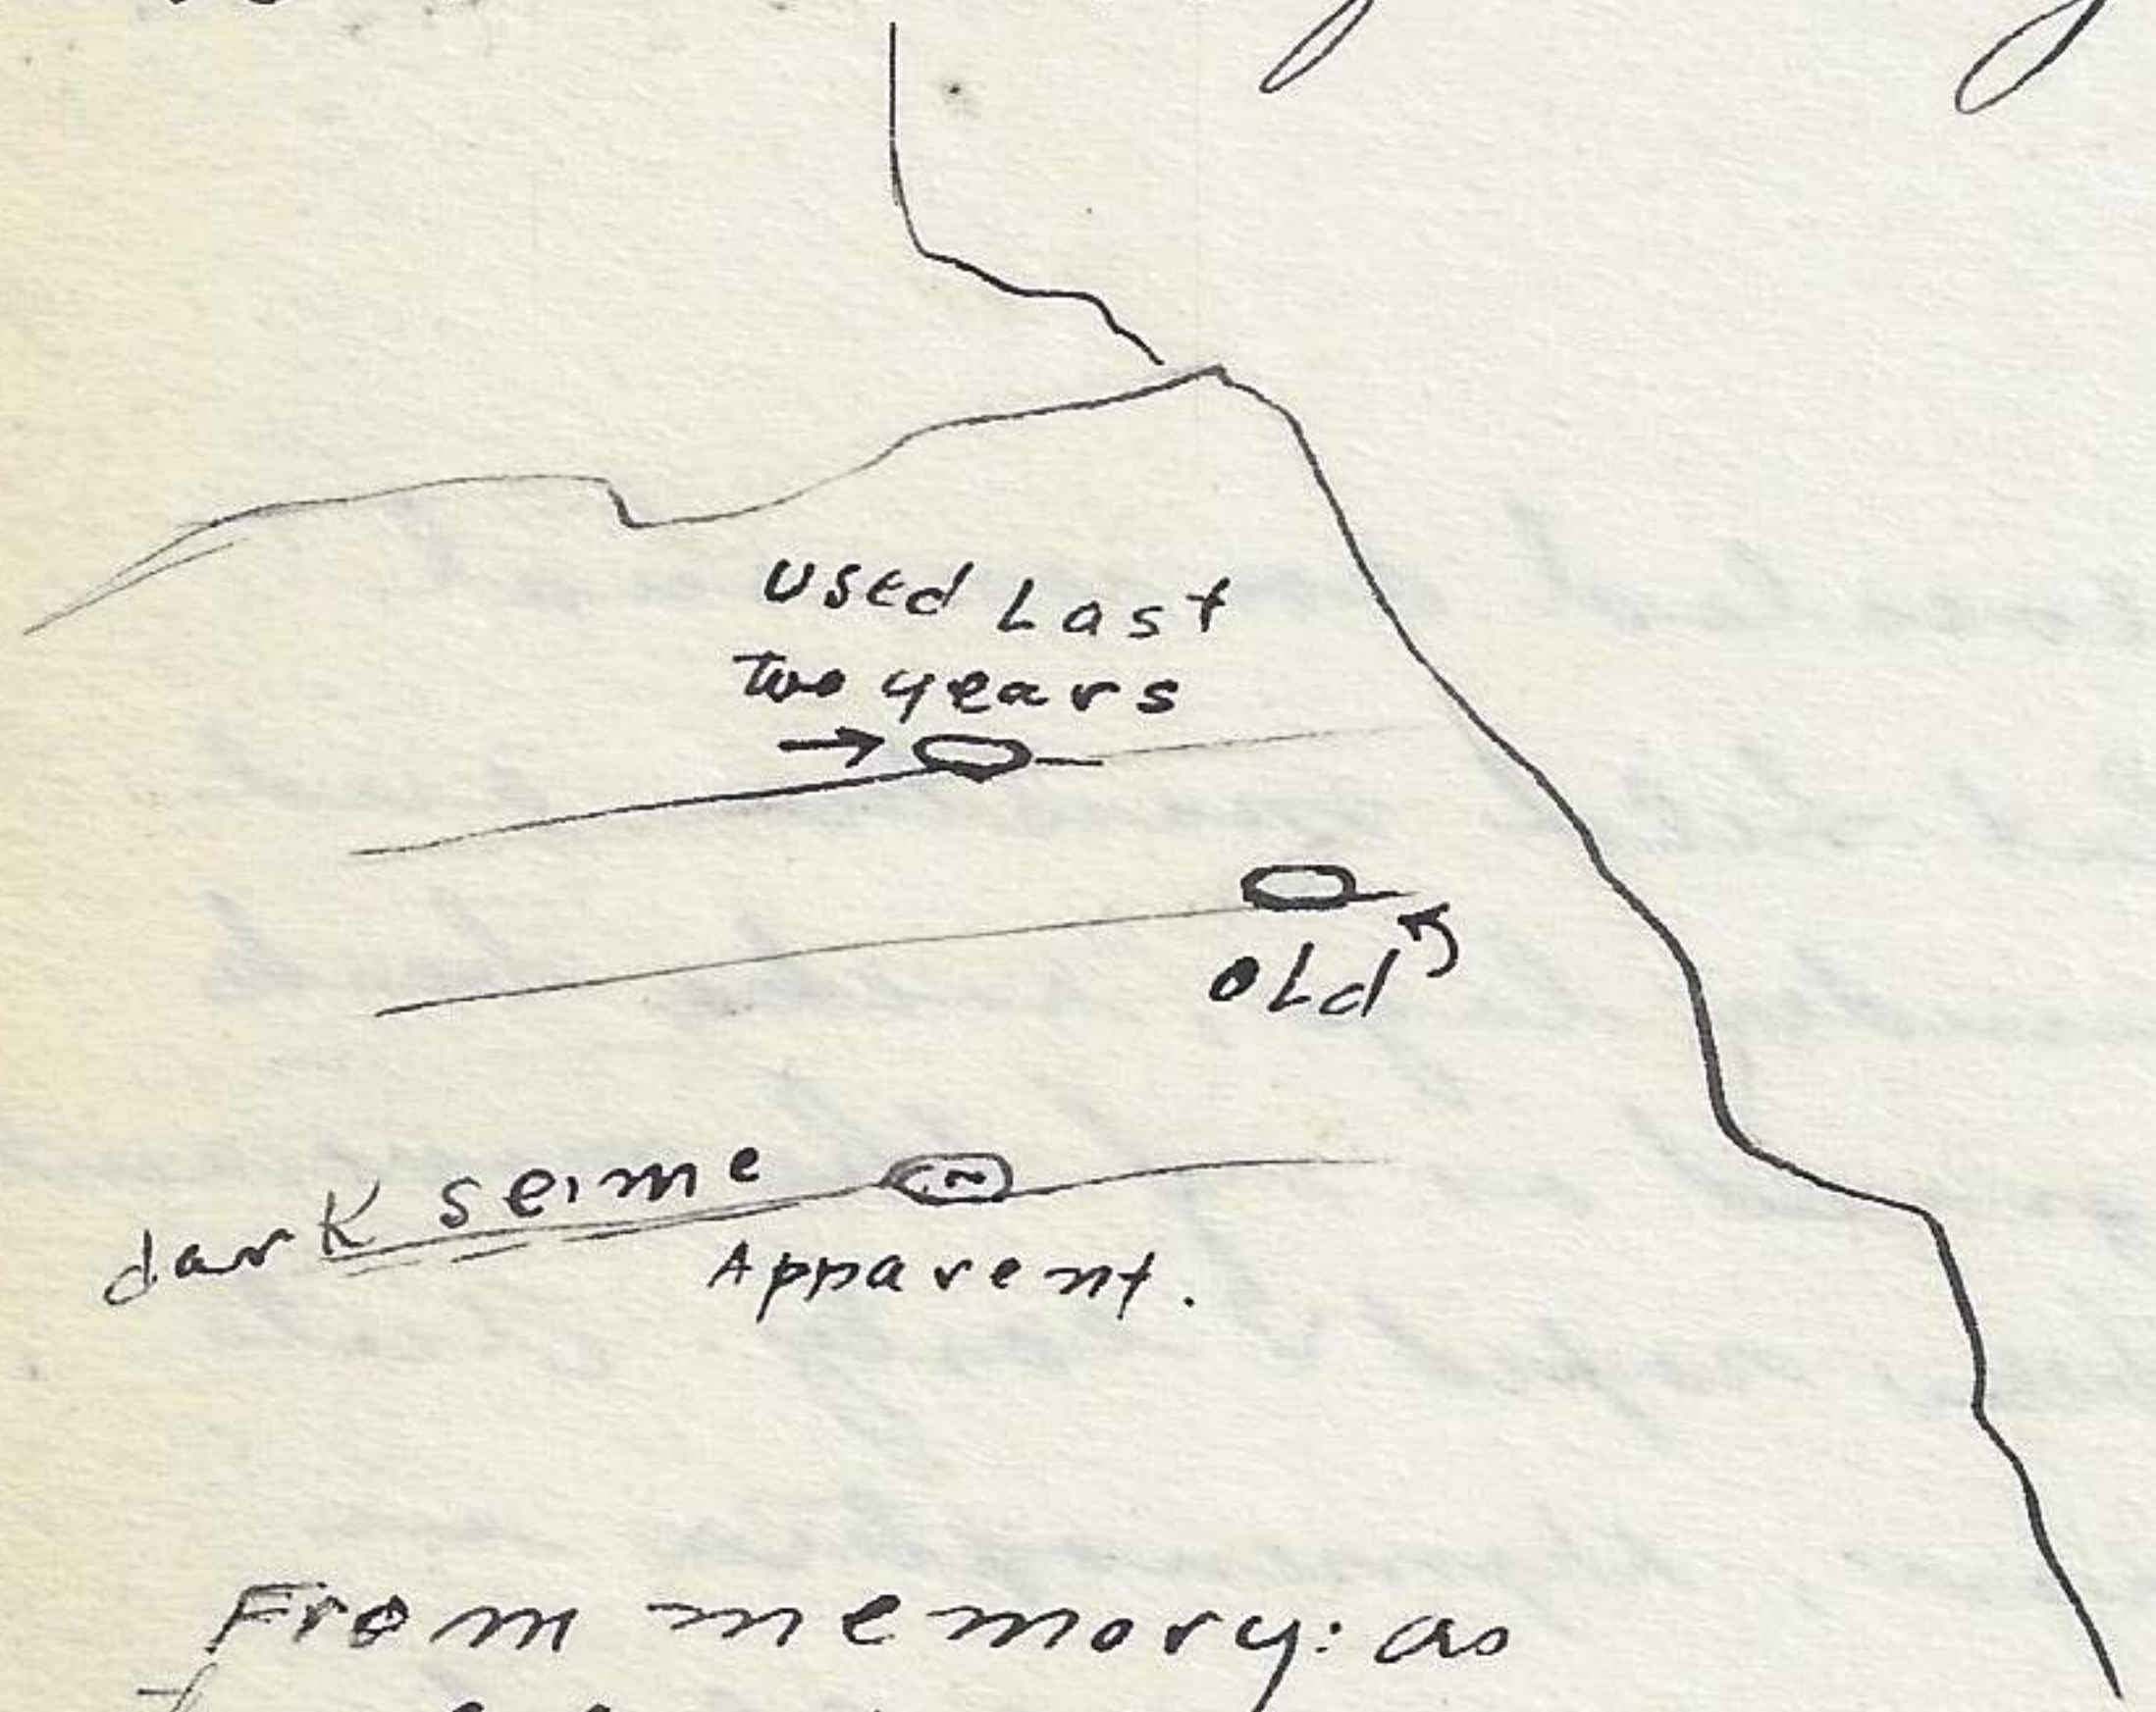 Used Last
Two years
old
dark seime
Apparent.
From memory: as